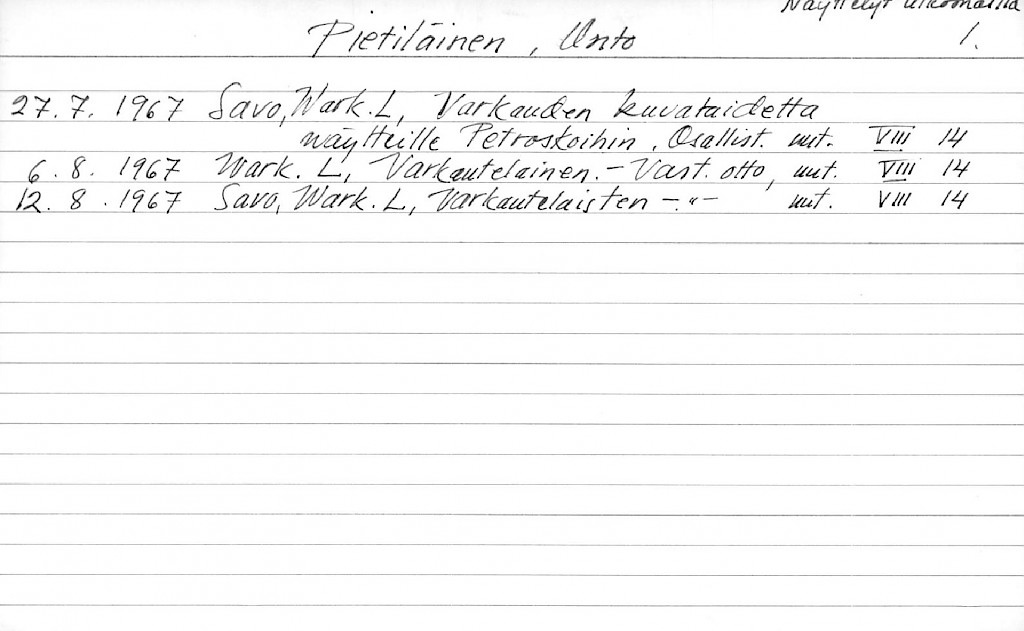 Näyttelyt ulkomailla
Pietiläinen, Unto 1.
27.7. 1967 Savo, Wark. L, Varkauden kuvataidetta
näytteille Petroskoihin, Osallist. mt. VIII 14
6.8. 1967 Wark. L, Varkautelainen. - Vast. otto, mt. VIII 14
12.8.1967 Savo, Wark. L, Varkautelaisten -"- mt. VIII 14